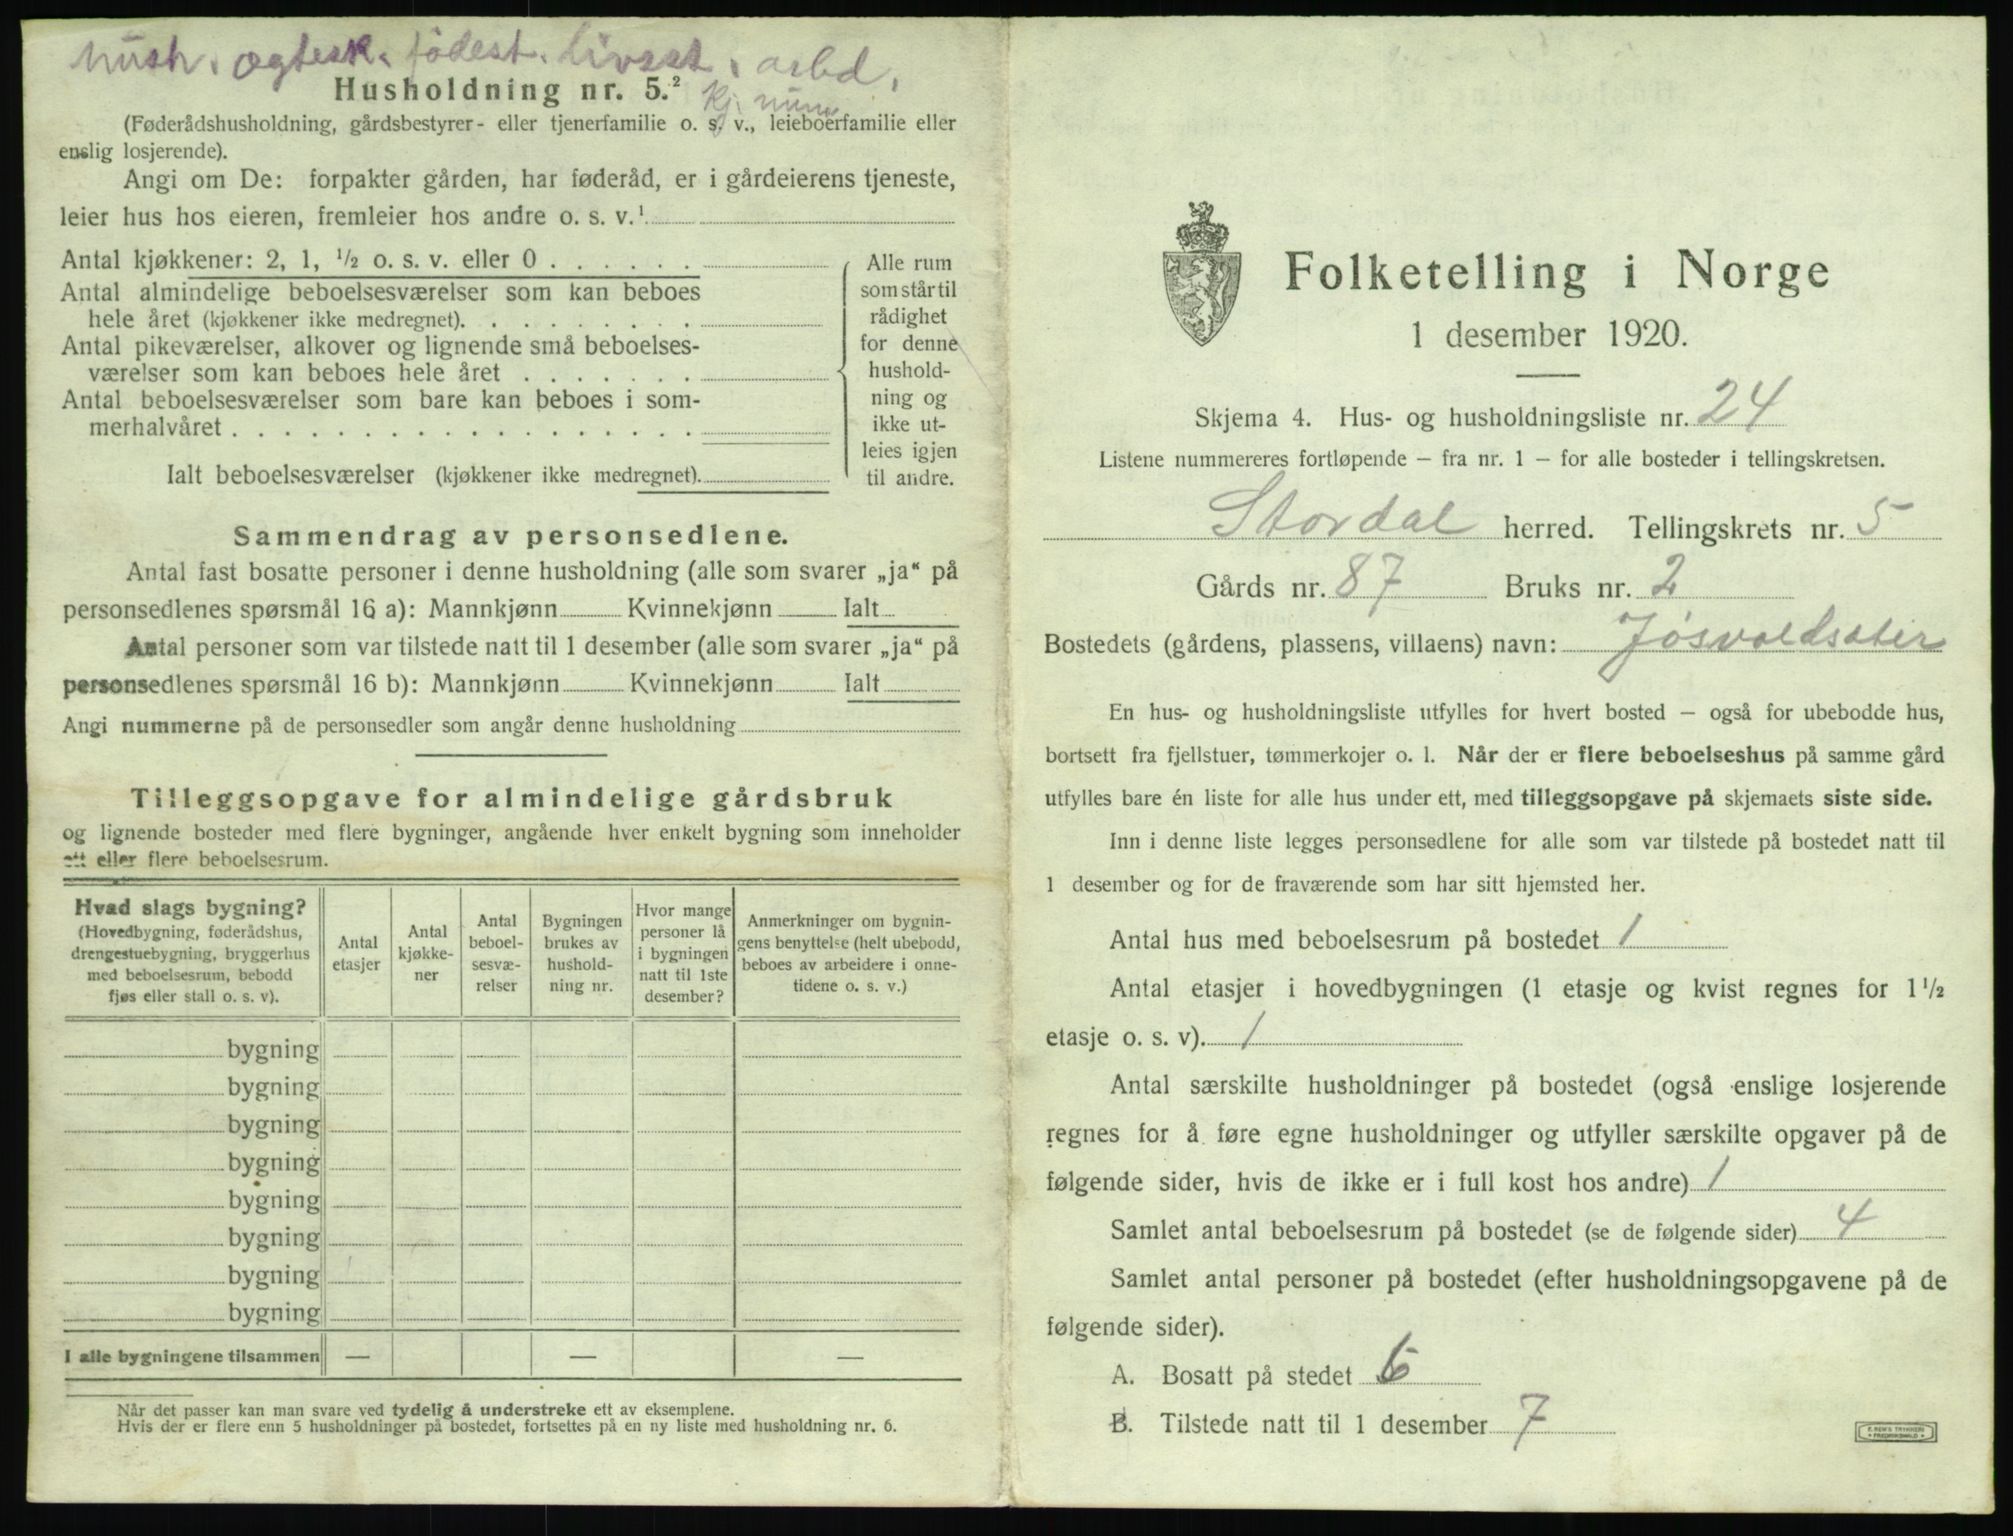 hush. ogtesk. fødest. livsst. arbd.
Husholdning nr. 5.²
kj. num
(Føderådshusholdning, gårdsbestyrer- eller tjenerfamilie o. s. v., leieboerfamilie eller
enslig losjerende).
Angi om De: forpakter gården, har føderåd, er i gårdeierens tjeneste,
leier hus hos eieren, fremleier hos andre o. s. v.¹
Antal kjøkkener: 2, 1, ½ o. s. v. eller 0 . . . . . .
Antal almindelige beboelsesværelser som kan beboes
hele året (kjøkkener ikke medregnet). . . . . . . . .
Antal pikeværelser, alkover og lignende små beboelses-
værelser som kan beboes hele året . . . . . . .
Antal beboelsesværelser som bare kan beboes i som-
merhalvåret . . . . . . . . . . . . . . . . . .
Ialt beboelsesværelser (kjøkkener ikke medregnet).
Alle rum
som står til
rådighet
for denne
hushold-
ning og
ikke ut-
leies igjen
til andre.
Sammendrag av personsedlene.
Antal fast bosatte personer i denne husholdning (alle som svarer „ja“ på
personsedlenes spørsmål 16 a): Mannkjønn Kvinnekjønn Ialt
Antal personer som var tilstede natt til 1 desember (alle som svarer „ja“ på
personsedlenes spørsmål 16 b): Mannkjønn Kvinnekjønn Ialt
Angi nummerne på de personsedler som angår denne husholdning
Tilleggsopgave for almindelige gårdsbruk
og lignende bosteder med flere bygninger, angående hver enkelt bygning som inneholder
ett eller flere beboelsesrum.
Hvad slags bygning?
(Hovedbygning, føderådshus,
drengestuebygning, bryggerhus
med beboelsesrum, bebodd
fjøs eller stall o. s. v).
Antal
etasjer
Antal
kjøkke-
ner
Antal
beboel-
sesvæ-
relser
Bygningen
brukes av
hushold-
ning nr.
Hvor mange
personer lå
i bygningen
natt til 1ste
desember?
Anmerkninger om bygnin-
gens benyttelse (helt ubebodd,
beboes av arbeidere i onne-
tidene o. s. v.)
bygning
bygning
bygning
bygning
bygning
bygning
bygning
bygning
I alle bygningene tilsammen — — —
Når det passer kan man svare ved tydelig å understreke ett av eksemplene.
Hvis der er flere enn 5 husholdninger på bostedet, fortsettes på en ny liste med husholdning nr. 6.
Folketelling i Norge
1 desember 1920.
Skjema 4. Hus- og husholdningsliste nr. 24
Listene nummereres fortløpende – fra nr. 1 – for alle bosteder i tellingskretsen.
Stordal herred. Tellingskrets nr. 5
Gårds nr. 87 Bruks nr. 2
Bostedets (gårdens, plassens, villaens) navn: Jøsvoldsæter
En hus- og husholdningsliste utfylles for hvert bosted – også for ubebodde hus,
bortsett fra fjellstuer, tømmerkojer o. l. Når der er flere beboelseshus på samme gård
utfylles bare én liste for alle hus under ett, med tilleggsopgave på skjemaets siste side.
Inn i denne liste legges personsedlene for alle som var tilstede på bostedet natt til
1 desember og for de fraværende som har sitt hjemsted her.
Antal hus med beboelsesrum på bostedet 1
Antal etasjer i hovedbygningen (1 etasje og kvist regnes for 1½
etasje o. s. v). 1
Antal særskilte husholdninger på bostedet (også enslige losjerende
regnes for å føre egne husholdninger og utfyller særskilte opgaver på de
følgende sider, hvis de ikke er i full kost hos andre) 1
Samlet antal beboelsesrum på bostedet (se de følgende sider) 4
Samlet antal personer på bostedet (efter husholdningsopgavene på de
følgende sider).
A. Bosatt på stedet 6
B. Tilstede natt til 1 desember 7